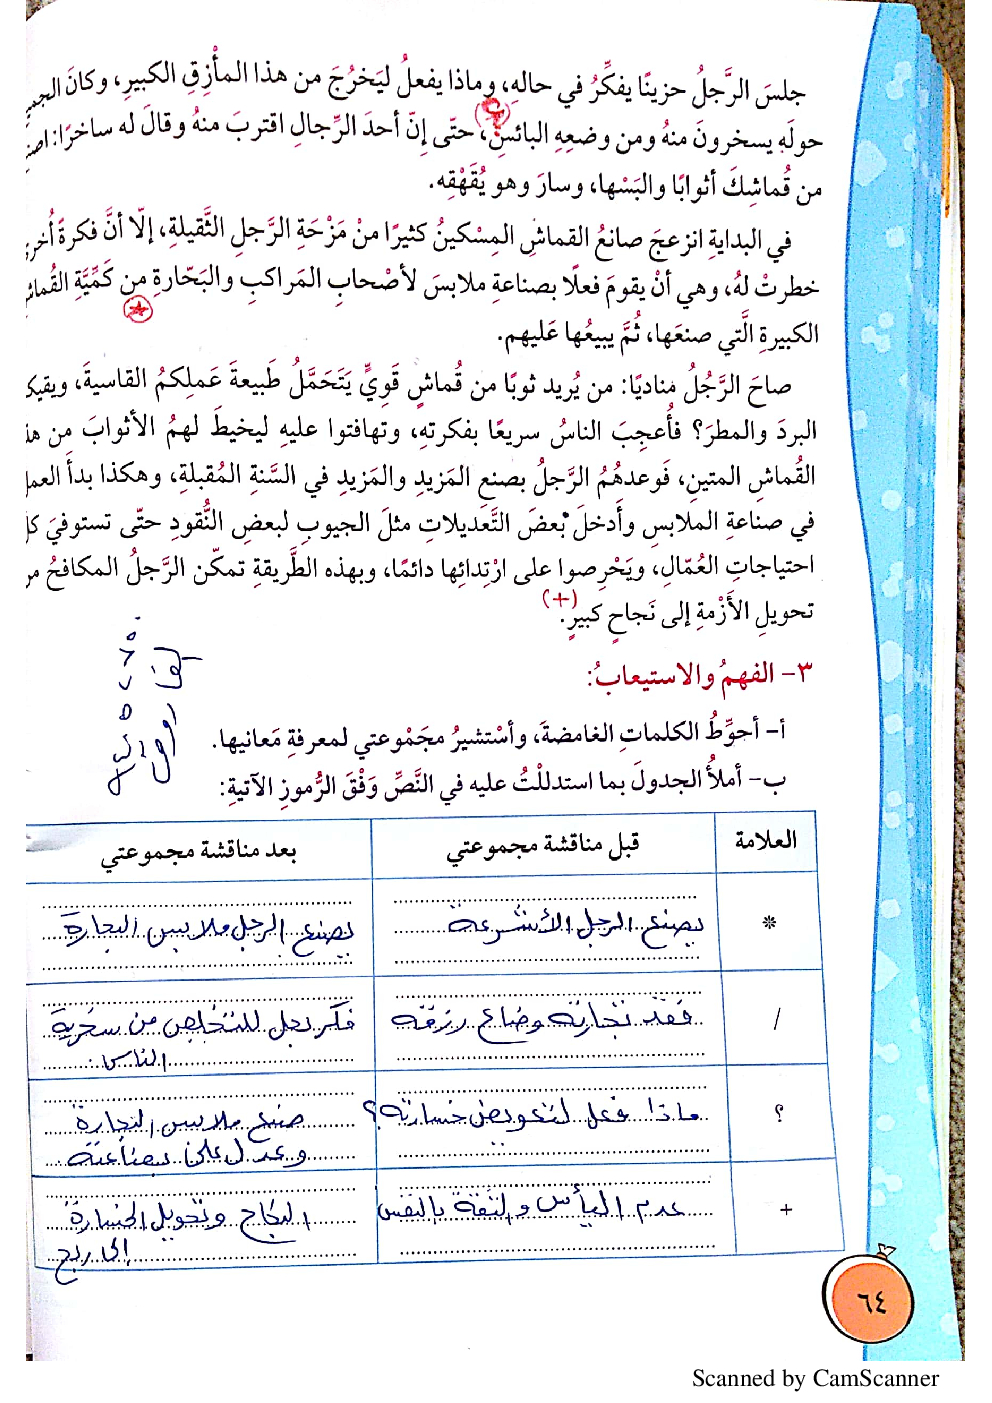 جلسَ الرَّجلُ حزينًا يفكِّرُ في حالهِ، وماذا يفعلُ ليَخرُجَ من هذا المأزِقِ الكبيرِ، وكانَ
حولَه يسخرونَ منهُ ومن وضعِهِ البائسِ، حتّى إنّ أحدَ الرِّجالِ اقتربَ منهُ وقالَ له ساخرًا:
من قُماشِكَ أثوابًا والبَسْها، وسارَ وهو يُقَهْقِه.
في البدايةِ انزعجَ صانعُ القماشِ المِسْكينُ كثيرًا منْ مَزْحَةِ الرَّجلِ الثَّقيلةِ، إلّا أنَّ فكرةً
خطرتْ لهُ، وهي أنْ يقومَ فعلًا بصناعةِ ملابسَ لأصْحابِ المَراكبِ والبَحّارةِ من كَمِّيَّةِ
الكبيرةِ الَّتي صنعَها، ثُمَّ يبيعُها عَليهم.
صاحَ الرَّجُلُ مناديًا: من يُريد ثوبًا من قُماشٍ قَويٍّ يَتَحَمَّلُ طَبيعةَ عَملِكمُ القاسيةَ،
البردَ والمطرَ؟ فأُعجِبَ الناسُ سريعًا بفكرتهِ، وتهافتوا عليهِ ليخيطَ لهمُ الأثوابَ من
القُماشِ المتينِ، فَوعدهُمُ الرَّجلُ بصنعِ المَزيدِ والمَزيدِ في السَّنةِ المُقبلةِ، وهكذا بدأَ
في صناعةِ الملابسِ وأدخلَ بعضَ التَّعديلاتِ مثلَ الجيوبِ لبعضِ النُّقودِ حتّى تستوفيَ
احتياجاتِ العُمّالِ، ويَحْرصوا على ارْتِدائِها دائمًا، وبهذه الطَّريقةِ تمكّن الرَّجلُ المكافحُ
تحويلِ الأَزْمةِ إلى نَجاحٍ كبيرٍ.
(+)
٣- الفهمُ والاستيعابُ:
أ- أحوِّطُ الكلماتِ الغامضةَ، وأسْتشيرُ مجَمْوعتي لمعرفةِ مَعانيها.
ب- أملأُ الجدولَ بما استدللْتُ عليه في النَّصِّ وَفْقَ الرُّموزِ الآتيةِ:
العلامة قبل مناقشة مجموعتي بعد مناقشة مجموعتي
* يصنع الرجل الأشرعة يصنع الرجل ملابس البحارة
/ فقد تجارته وضاع رزقه فكر بحل للتخلص من سخرية
الناس
؟ ماذا فعل لتعويض خسارته؟ صنع ملابس البحارة
وعدل على بضاعته
+ عدم اليأس والثقة بالنفس النجاح وتحويل الخسارة
إلى ربح
٦٤
Scanned by CamScanner